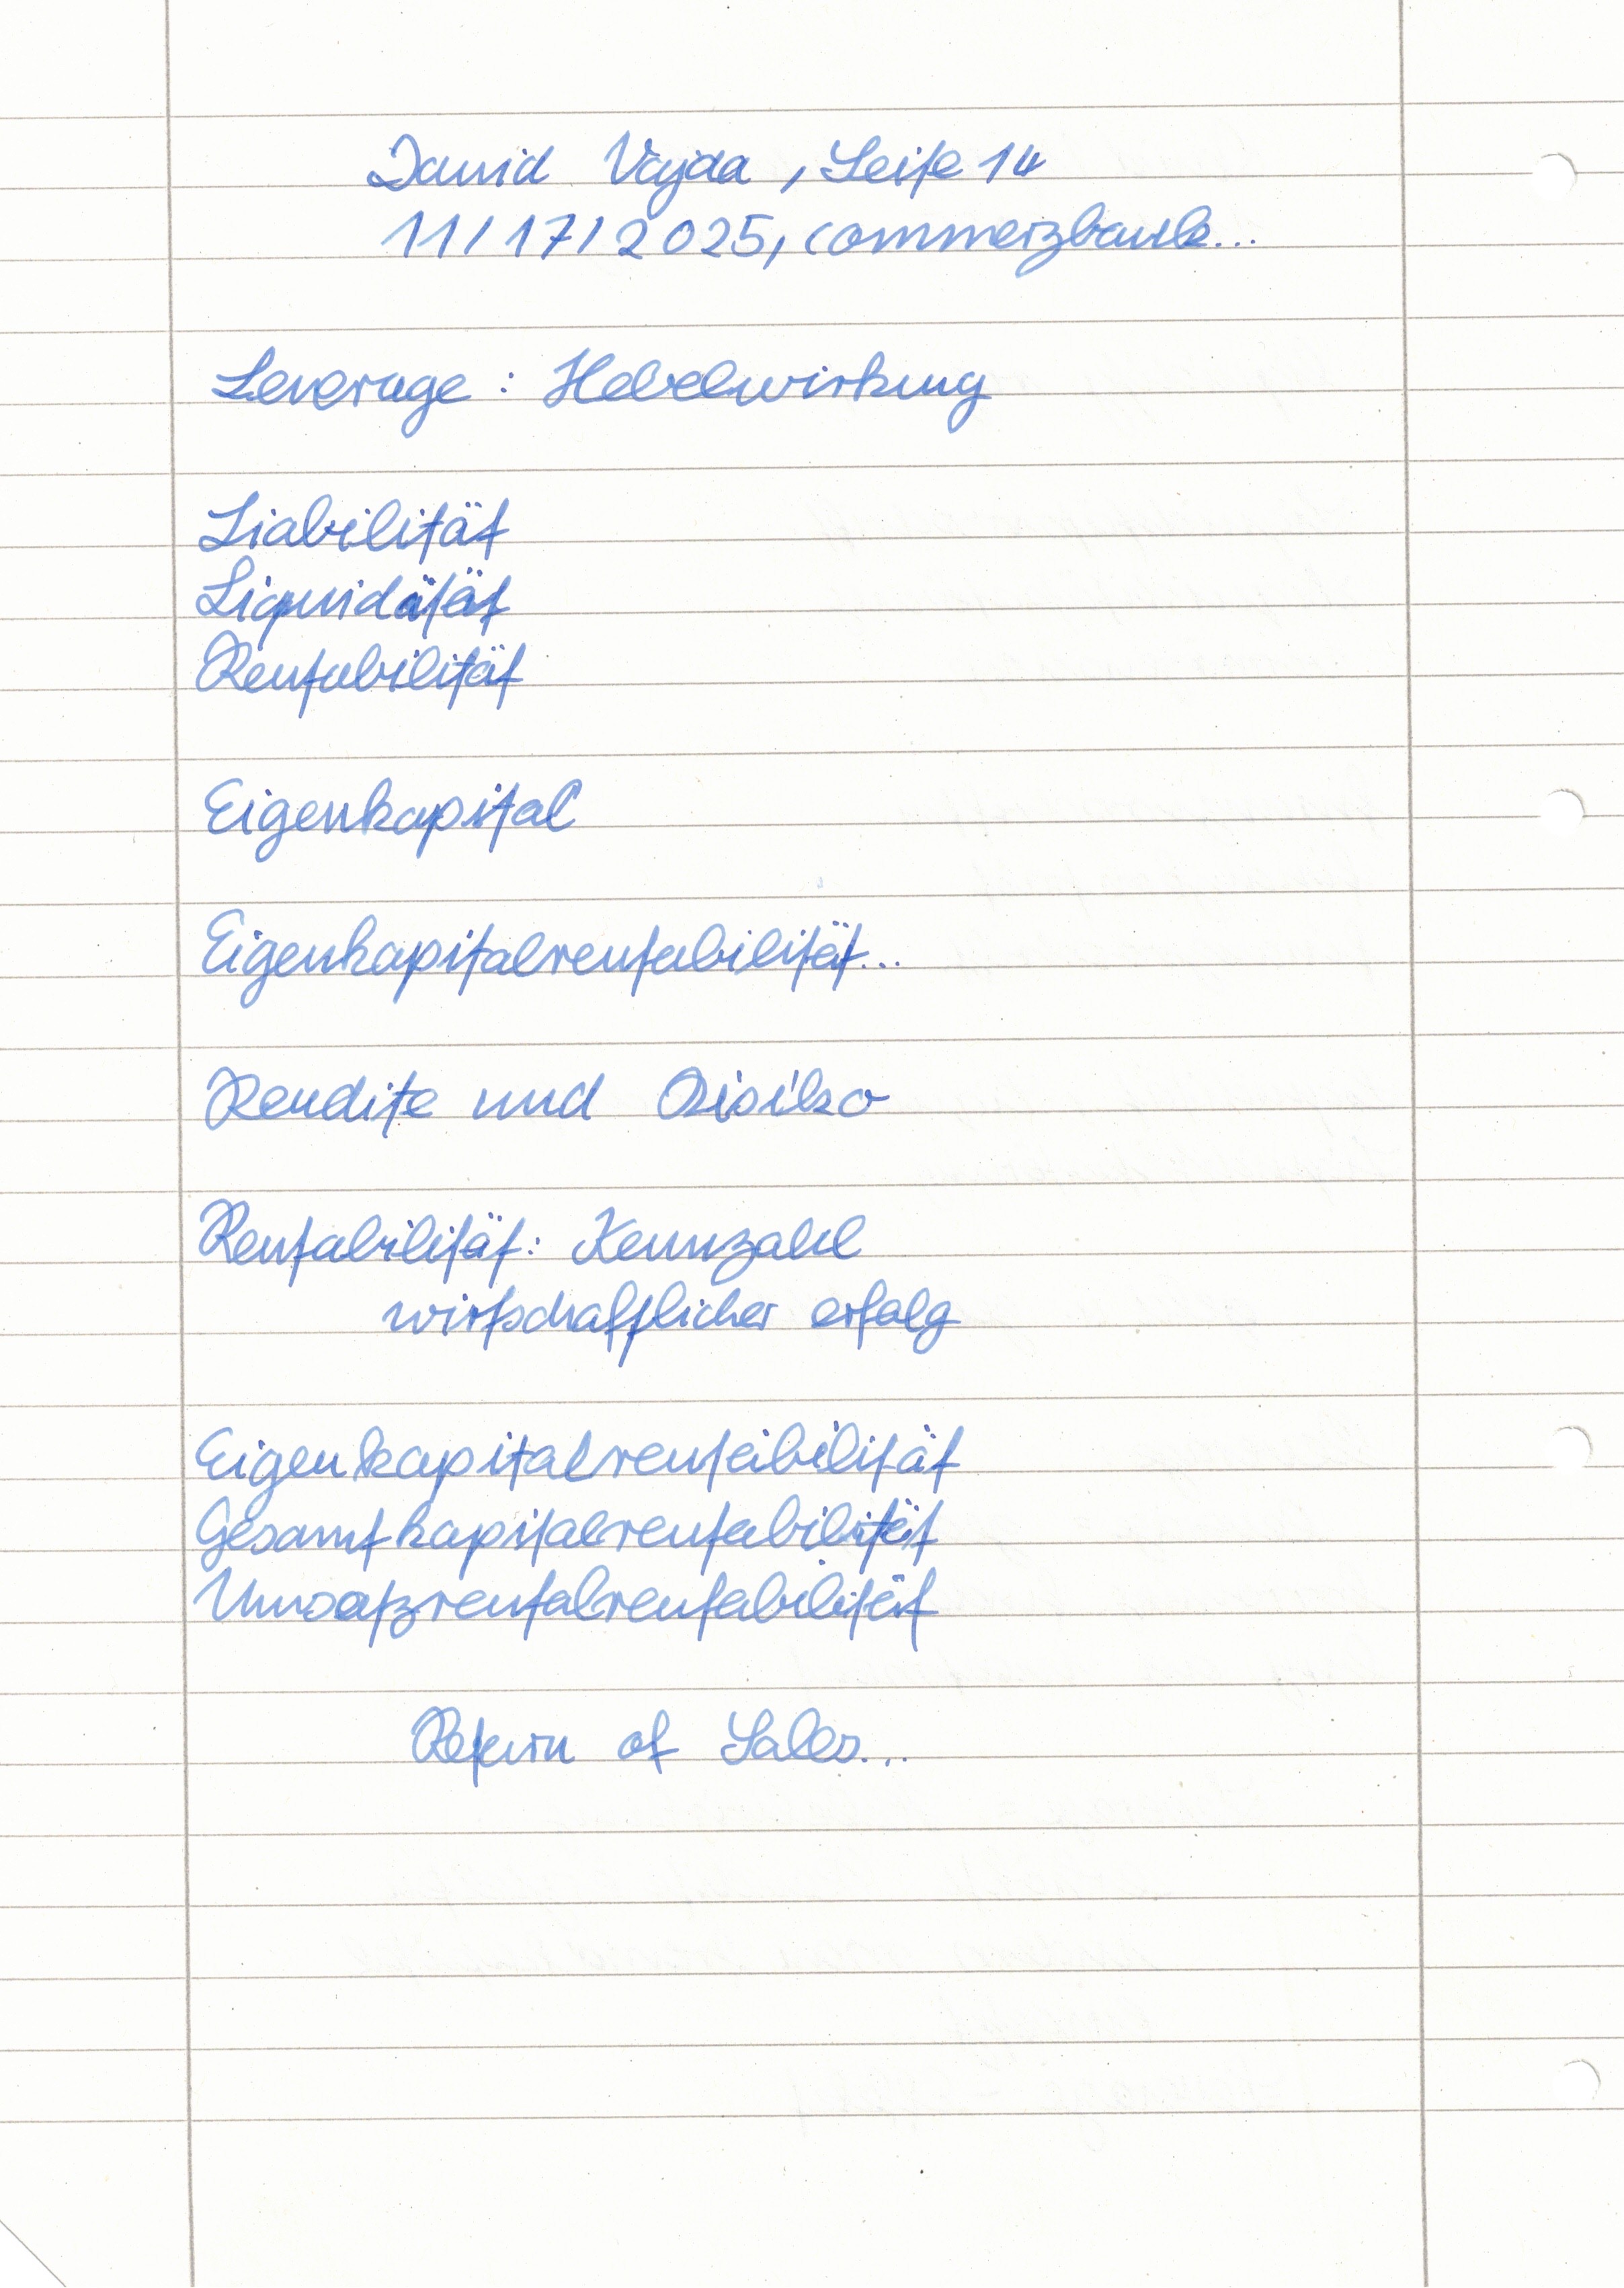 David Vajda, Seite 14
11/17/2025, Commerzbank...
Leverage: Hebelwirkung
Liabilität
Liquidätät
Rentabilität
Eigenkapital
Eigenkapitalrentabilität...
Rendite und Risiko
Rentabilität: Kennzahl
wirtschaftlicher erfolg
Eigenkapitalrentabilität
Gesamtkapitalrentabilität
Umsatzrentalrentabilität
Return of Sales...